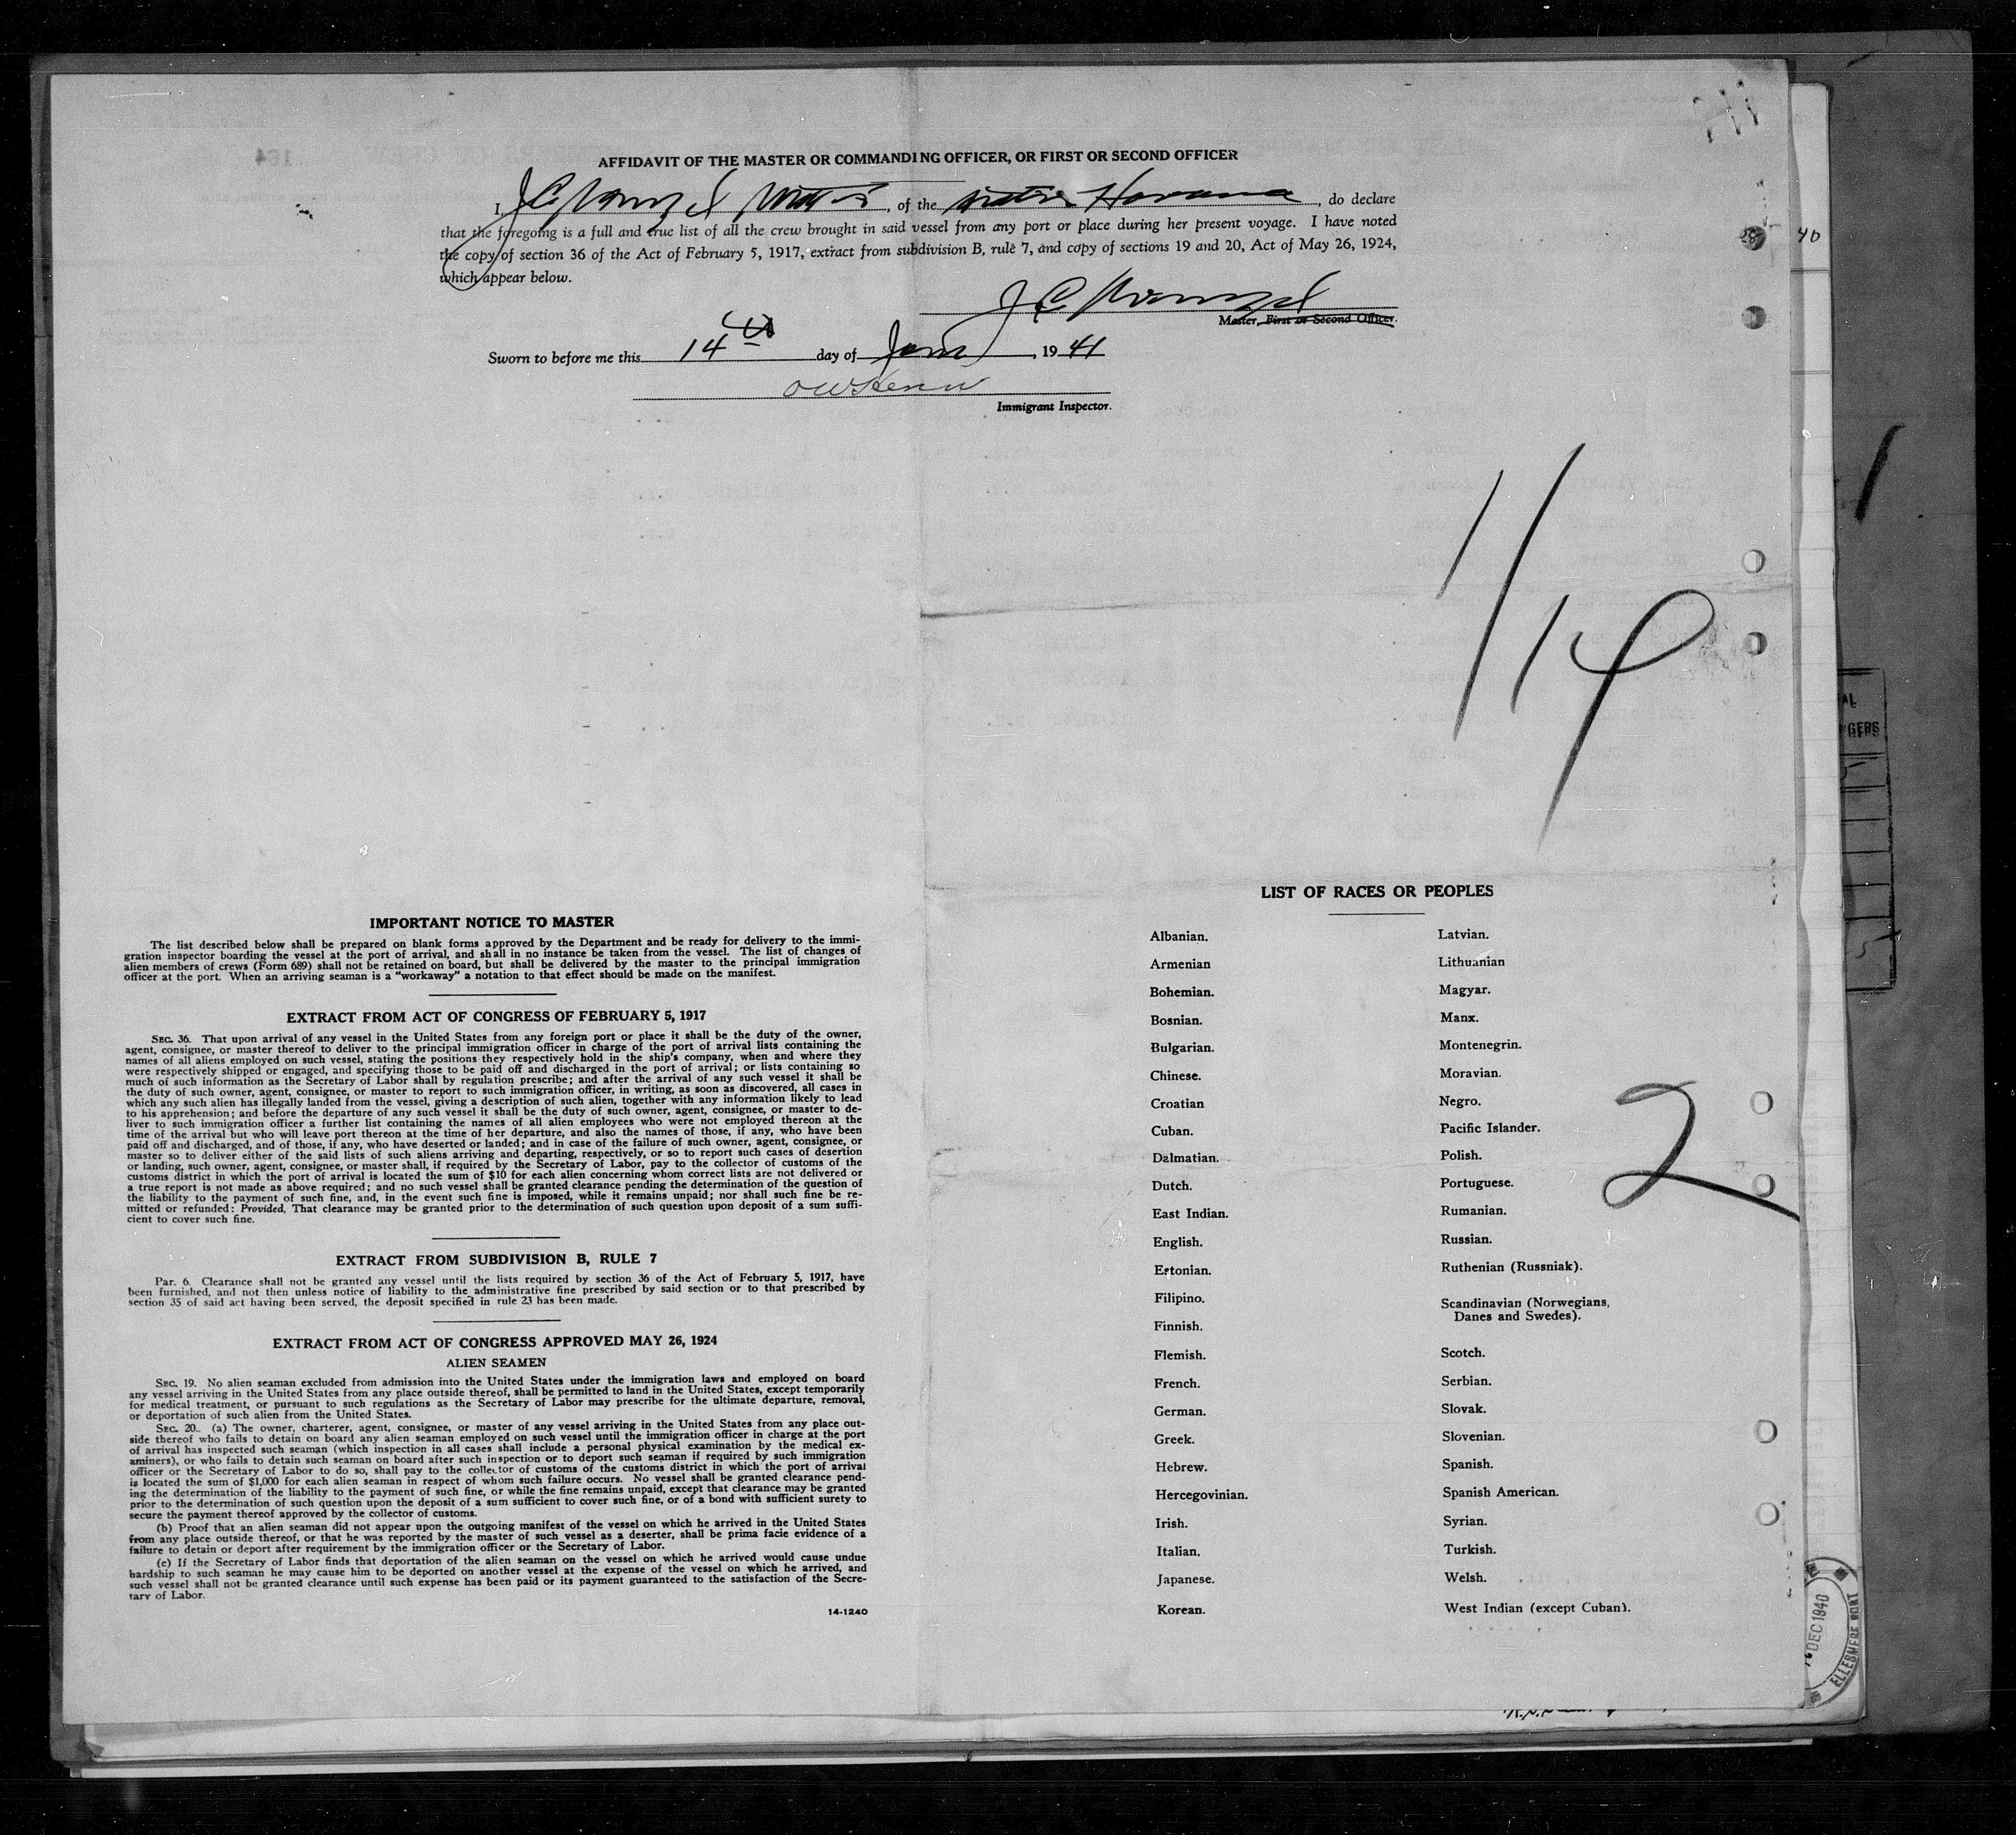 AFFIDAVIT OF THE MASTER OR COMMANDING OFFICER, OR FIRST OR SECOND OFFICER
I, J C , of the Havana, do declare
that the foregoing is a full and true list of all the crew brought in said vessel from any port or place during her present voyage. I have noted
the copy of section 36 of the Act of February 5, 1917, extract from subdivision B, rule 7, and copy of sections 19 and 20, Act of May 26, 1924,
which appear below.
J C
Master, First or Second Officer.
Sworn to before me this 14th day of Jan, 1941
Immigrant Inspector.
40
1/14
2
IMPORTANT NOTICE TO MASTER
The list described below shall be prepared on blank forms approved by the Department and be ready for delivery to the immi-
gration inspector boarding the vessel at the port of arrival, and shall in no instance be taken from the vessel. The list of changes of
alien members of crews (Form 689) shall not be retained on board, but shall be delivered by the master to the principal immigration
officer at the port. When an arriving seaman is a "workaway" a notation to that effect should be made on the manifest.
EXTRACT FROM ACT OF CONGRESS OF FEBRUARY 5, 1917
SEC. 36. That upon arrival of any vessel in the United States from any foreign port or place it shall be the duty of the owner,
agent, consignee, or master thereof to deliver to the principal immigration officer in charge of the port of arrival lists containing the
names of all aliens employed on such vessel, stating the positions they respectively hold in the ship's company, when and where they
were respectively shipped or engaged, and specifying those to be paid off and discharged in the port of arrival; or lists containing so
much of such information as the Secretary of Labor shall by regulation prescribe; and after the arrival of any such vessel it shall be
the duty of such owner, agent, consignee, or master to report to such immigration officer, in writing, as soon as discovered, all cases in
which any such alien has illegally landed from the vessel, giving a description of such alien, together with any information likely to lead
to his apprehension; and before the departure of any such vessel it shall be the duty of such owner, agent, consignee, or master to de-
liver to such immigration officer a further list containing the names of all alien employees who were not employed thereon at the
time of the arrival but who will leave port thereon at the time of her departure, and also the names of those, if any, who have been
paid off and discharged, and of those, if any, who have deserted or landed; and in case of the failure of such owner, agent, consignee, or
master so to deliver either of the said lists of such aliens arriving and departing, respectively, or so to report such cases of desertion
or landing, such owner, agent, consignee, or master shall, if required by the Secretary of Labor, pay to the collector of customs of the
customs district in which the port of arrival is located the sum of $10 for each alien concerning whom correct lists are not delivered or
a true report is not made as above required; and no such vessel shall be granted clearance pending the determination of the question of
the liability to the payment of such fine, and, in the event such fine is imposed, while it remains unpaid; nor shall such fine be re-
mitted or refunded: Provided, That clearance may be granted prior to the determination of such question upon deposit of a sum suffi-
cient to cover such fine.
EXTRACT FROM SUBDIVISION B, RULE 7
Par. 6. Clearance shall not be granted any vessel until the lists required by section 36 of the Act of February 5, 1917, have
been furnished, and not then unless notice of liability to the administrative fine prescribed by said section or to that prescribed by
section 35 of said act having been served, the deposit specified in rule 23 has been made.
EXTRACT FROM ACT OF CONGRESS APPROVED MAY 26, 1924
ALIEN SEAMEN
SEC. 19. No alien seaman excluded from admission into the United States under the immigration laws and employed on board
any vessel arriving in the United States from any place outside thereof, shall be permitted to land in the United States, except temporarily
for medical treatment, or pursuant to such regulations as the Secretary of Labor may prescribe for the ultimate departure, removal,
or deportation of such alien from the United States.
SEC. 20. (a) The owner, charterer, agent, consignee, or master of any vessel arriving in the United States from any place out-
side thereof who fails to detain on board any alien seaman employed on such vessel until the immigration officer in charge at the port
of arrival has inspected such seaman (which inspection in all cases shall include a personal physical examination by the medical ex-
aminers), or who fails to detain such seaman on board after such inspection or to deport such seaman if required by such immigration
officer or the Secretary of Labor to do so, shall pay to the collector of customs of the customs district in which the port of arrival
is located the sum of $1,000 for each alien seaman in respect of whom such failure occurs. No vessel shall be granted clearance pend-
ing the determination of the liability to the payment of such fine, or while the fine remains unpaid, except that clearance may be granted
prior to the determination of such question upon the deposit of a sum sufficient to cover such fine, or of a bond with sufficient surety to
secure the payment thereof approved by the collector of customs.
(b) Proof that an alien seaman did not appear upon the outgoing manifest of the vessel on which he arrived in the United States
from any place outside thereof, or that he was reported by the master of such vessel as a deserter, shall be prima facie evidence of a
failure to detain or deport after requirement by the immigration officer or the Secretary of Labor.
(c) If the Secretary of Labor finds that deportation of the alien seaman on the vessel on which he arrived would cause undue
hardship to such seaman he may cause him to be deported on another vessel at the expense of the vessel on which he arrived, and
such vessel shall not be granted clearance until such expense has been paid or its payment guaranteed to the satisfaction of the Secre-
tary of Labor.
14-1240
LIST OF RACES OR PEOPLES
Albanian.
Armenian
Bohemian.
Bosnian.
Bulgarian.
Chinese.
Croatian
Cuban.
Dalmatian.
Dutch.
East Indian.
English.
Estonian.
Filipino.
Finnish.
Flemish.
French.
German.
Greek.
Hebrew.
Hercegovinian.
Irish.
Italian.
Japanese.
Korean.
Latvian.
Lithuanian
Magyar.
Manx.
Montenegrin.
Moravian.
Negro.
Pacific Islander.
Polish.
Portuguese.
Rumanian.
Russian.
Ruthenian (Russniak).
Scandinavian (Norwegians,
Danes and Swedes).
Scotch.
Serbian.
Slovak.
Slovenian.
Spanish.
Spanish American.
Syrian.
Turkish.
Welsh.
West Indian (except Cuban).
DEC 1940
ELLESMERE PORT